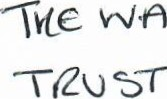 THE WA
TRUST